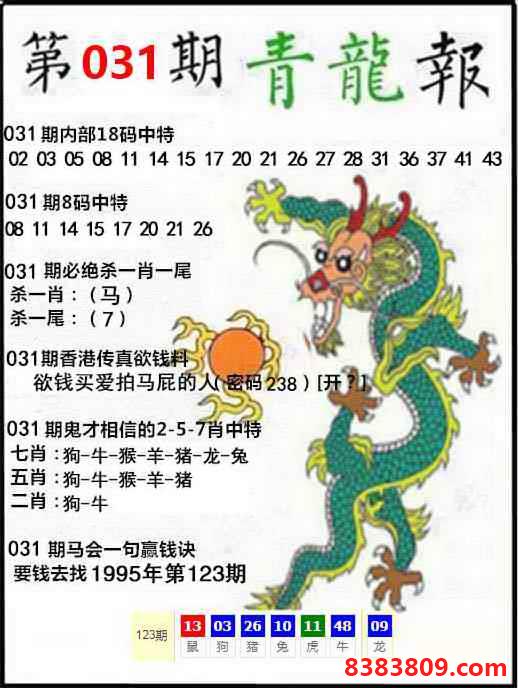 第031期青龍報
031期内部18码中特
02 03 05 08 11 14 15 17 20 21 26 27 28 31 36 37 41 43
031期8码中特
08 11 14 15 17 20 21 26
031 期必绝杀一肖一尾
杀一肖：（马）
杀一尾：（7）
031期香港传真欲钱料
欲钱买爱拍马屁的人(密码238)[开?]
031期鬼才相信的2-5-7肖中特
七肖：狗-牛-猴-羊-猪-龙-兔
五肖：狗-牛-猴-羊-猪
二肖：狗-牛
031 期马会一句赢钱诀
要钱去找1995年第123期
123期 13 03 26 10 11 48 09
鼠 狗 猪 兔 虎 牛 龙
8383809.com